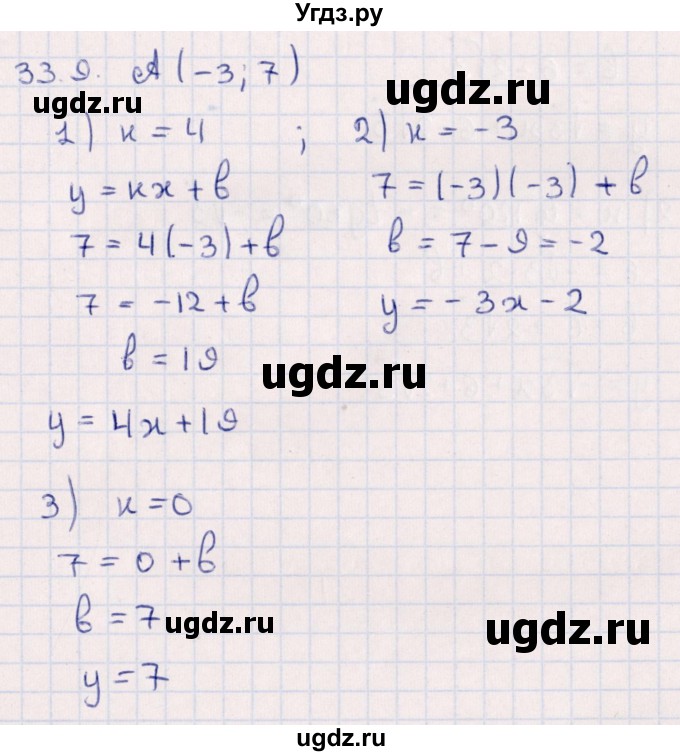 Угдз.ру
33.9. A (-3; 7)
1) к = 4 ;
y = кx + в
7 = 4(-3) + в
7 = -12 + в
в = 19
y = 4x + 19
2) к = -3
7 = (-3)(-3) + в
в = 7 - 9 = -2
y = -3x - 2
3) к = 0
7 = 0 + в
в = 7
y = 7
ugdz.ru
ugdz.ru
ugdz.ru
ugdz.ru
ugdz.ru
ugdz.ru